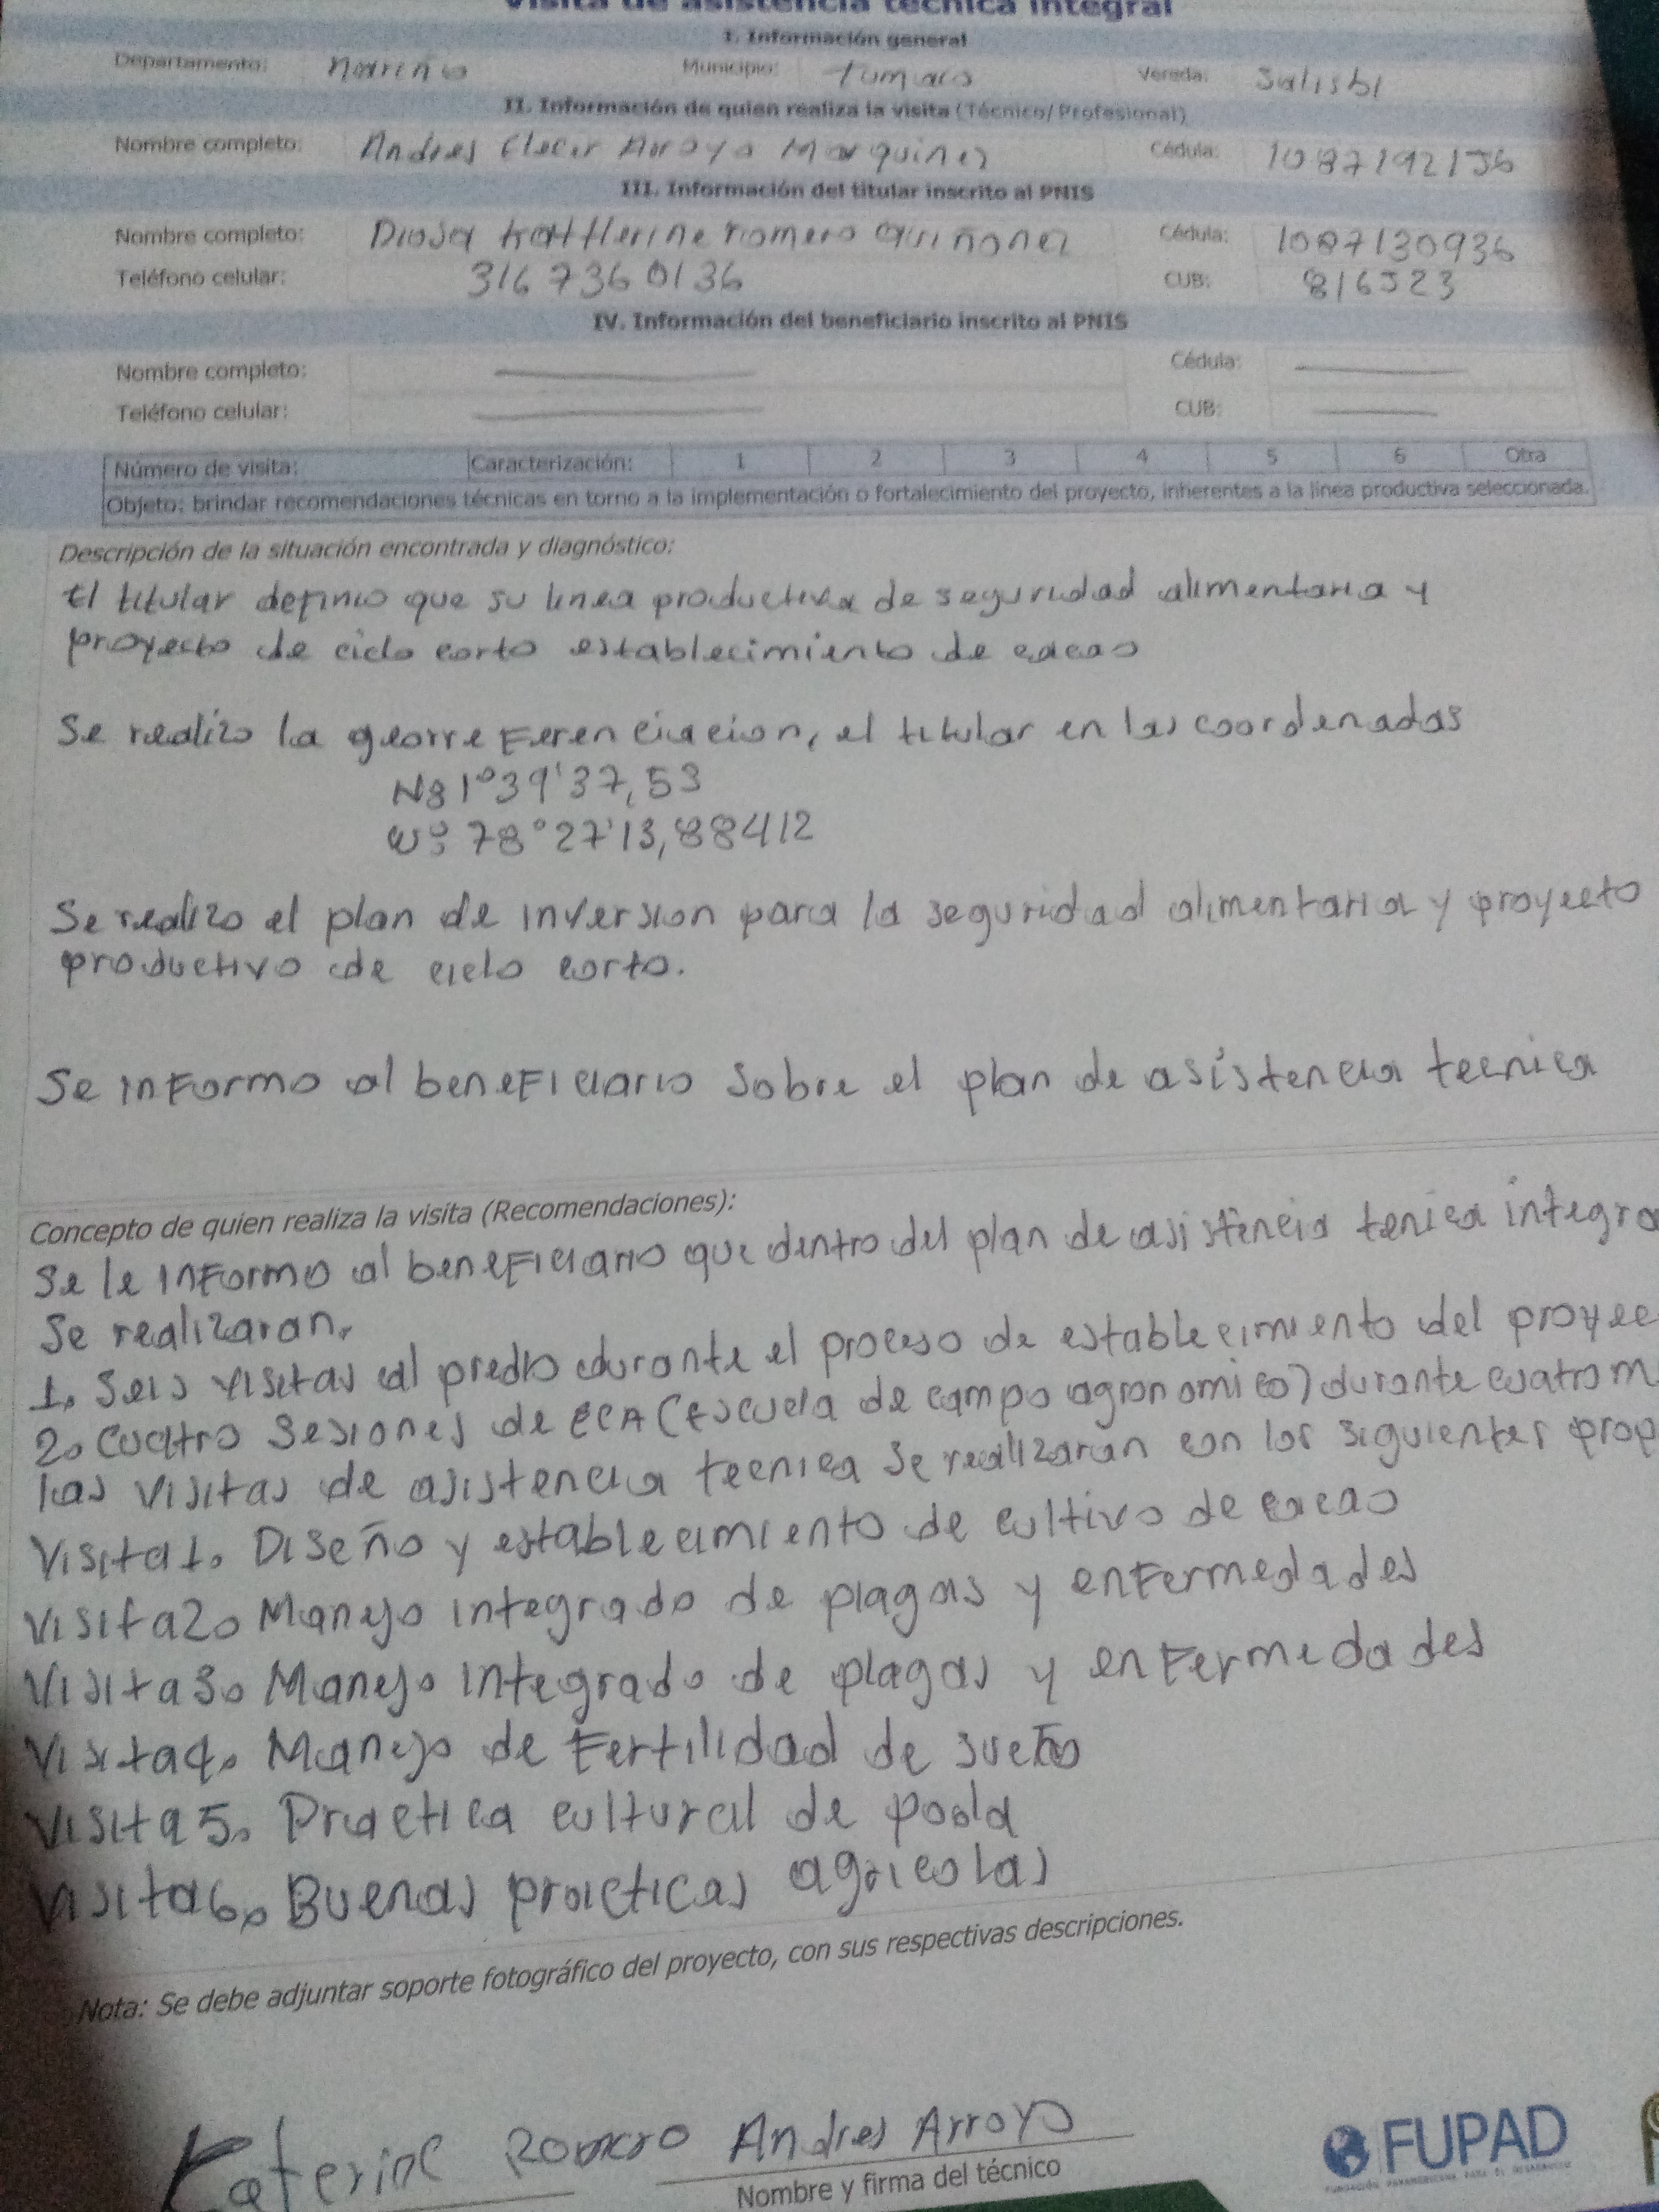 Visita de asistencia técnica integral
I. Información general
Departamento: nariño Municipio: Tumaco Vereda: Salisbi
II. Información de quien realiza la visita (Técnico/Profesional)
Nombre completo: Andres Arroyo Marquinez Cédula: 1087192136
III. Información del titular inscrito al PNIS
Nombre completo: Kattherine romero quiñonez Cédula: 1087130936
Teléfono celular: 316 736 0136 CUB: 816523
IV. Información del beneficiario inscrito al PNIS
Nombre completo: Cédula:
Teléfono celular: CUB:
Número de visita: Caracterización: 1 2 3 4 5 6 Otra
Objeto: brindar recomendaciones técnicas en torno a la implementación o fortalecimiento del proyecto, inherentes a la línea productiva seleccionada.
Descripción de la situación encontrada y diagnóstico:
El titular definio que su linea productiva de seguridad alimentaria y
proyecto de ciclo corto establecimiento de cacao
Se realizo la georreferenciacion, el titular en las coordenadas
N: 1°39'37,53
W: 78°27'13,88412
Se realizo el plan de inversion para la seguridad alimentaria y proyecto
productivo de ciclo corto.
Se informo al beneficiario sobre el plan de asistencia tecnica
Concepto de quien realiza la visita (Recomendaciones):
Se le informo al beneficiario que dentro del plan de asistencia tenica integra
Se realizaran.
1. Seis visitas al predio durante el proceso de establecimiento del proyec
2. Cuatro Sesiones de ECA (Escuela de campo agronomico) durante cuatro m
las visitas de asistencia tecnica se realizaran con los siguientes prop
Visita 1. Diseño y establecimiento de cultivo de cacao
Visita 2. Manejo integrado de plagas y enfermedades
Visita 3. Manejo integrado de plagas y enfermedades
Visita 4. Manejo de fertilidad de suelo
Visita 5. Practica cultural de poda
Visita 6. Buenas practicas agricolas
Nota: Se debe adjuntar soporte fotográfico del proyecto, con sus respectivas descripciones.
Katerine Romero Andres Arroyo
Nombre y firma del técnico
FUPAD
FUNDACIÓN PANAMERICANA PARA EL DESARROLLO